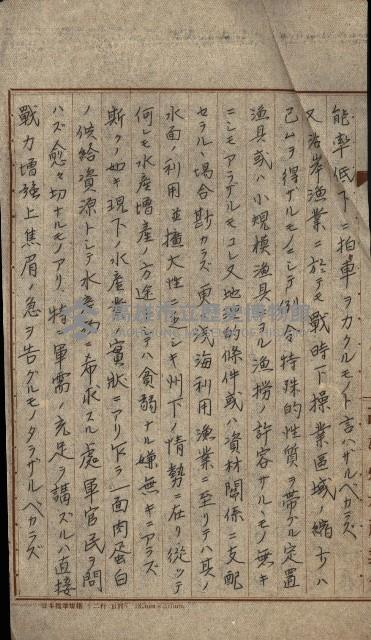 能率低下ニ拍車ヲカクルモノト言ハザルベカラズ
又沿岸漁業ニ於テモ戰時下操業區域ノ縮少ハ
己ムヲ得ザルモノニシテ例令特殊的性質ヲ帶ブル定置
漁具或ハ小規模漁具ニヨル漁撈ノ許容サルヽモノ無キ
ニシモアラザルモコレ又地的條件或ハ資材關係ニ支配
セラルヽ場合尠カラズ更ニ浅海利用漁業ニ至リテハ其ノ
水面ノ利用並擴大性ニ乏シキ州下ノ情勢ニ在リ從ツテ
何レモ水產增產ノ方途ニテハ貧弱ナル嫌無キニアラズ
斯クノ如キ現下ノ水產業ノ實狀ニアリ乍ラ一面肉蛋白
ノ供給資源トシテ水產物ニ希求スル處軍官民ヲ問
ハズ愈々切ナルモノアリ特ニ軍需ノ充足ヲ講ズルハ直接
戰力增强上焦眉ノ急ヲ告グルモノタラザルベカラズ
高雄市立歷史博物館